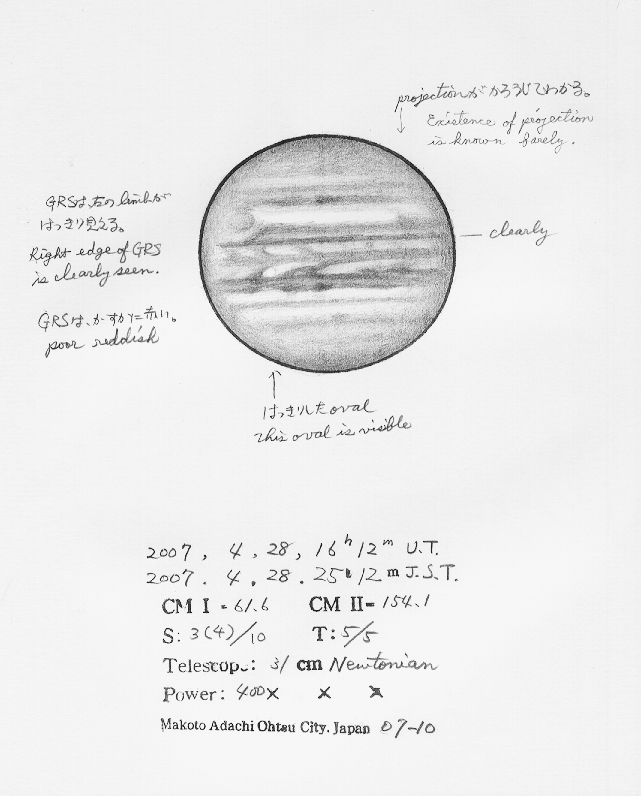 projectionが かろうじてわかる。
Existence of projection
is known barely.
GRSは、右の limbが
はっきり見える。
Right edge of GRS
is clearly seen.
clearly
GRSは、かすかに赤い。
poor reddish
はっきりした oval
This oval is visible
2007, 4, 28, 16h 12m U.T.
2007. 4. 28. 25h 12m J.S.T.
CM I = 61.6 CM II= 154.1
S: 3(4)/10 T: 5/5
Telescope: 31 cm Newtonian
Power: 400× × ×
Makoto Adachi Ohtsu City. Japan 07-10